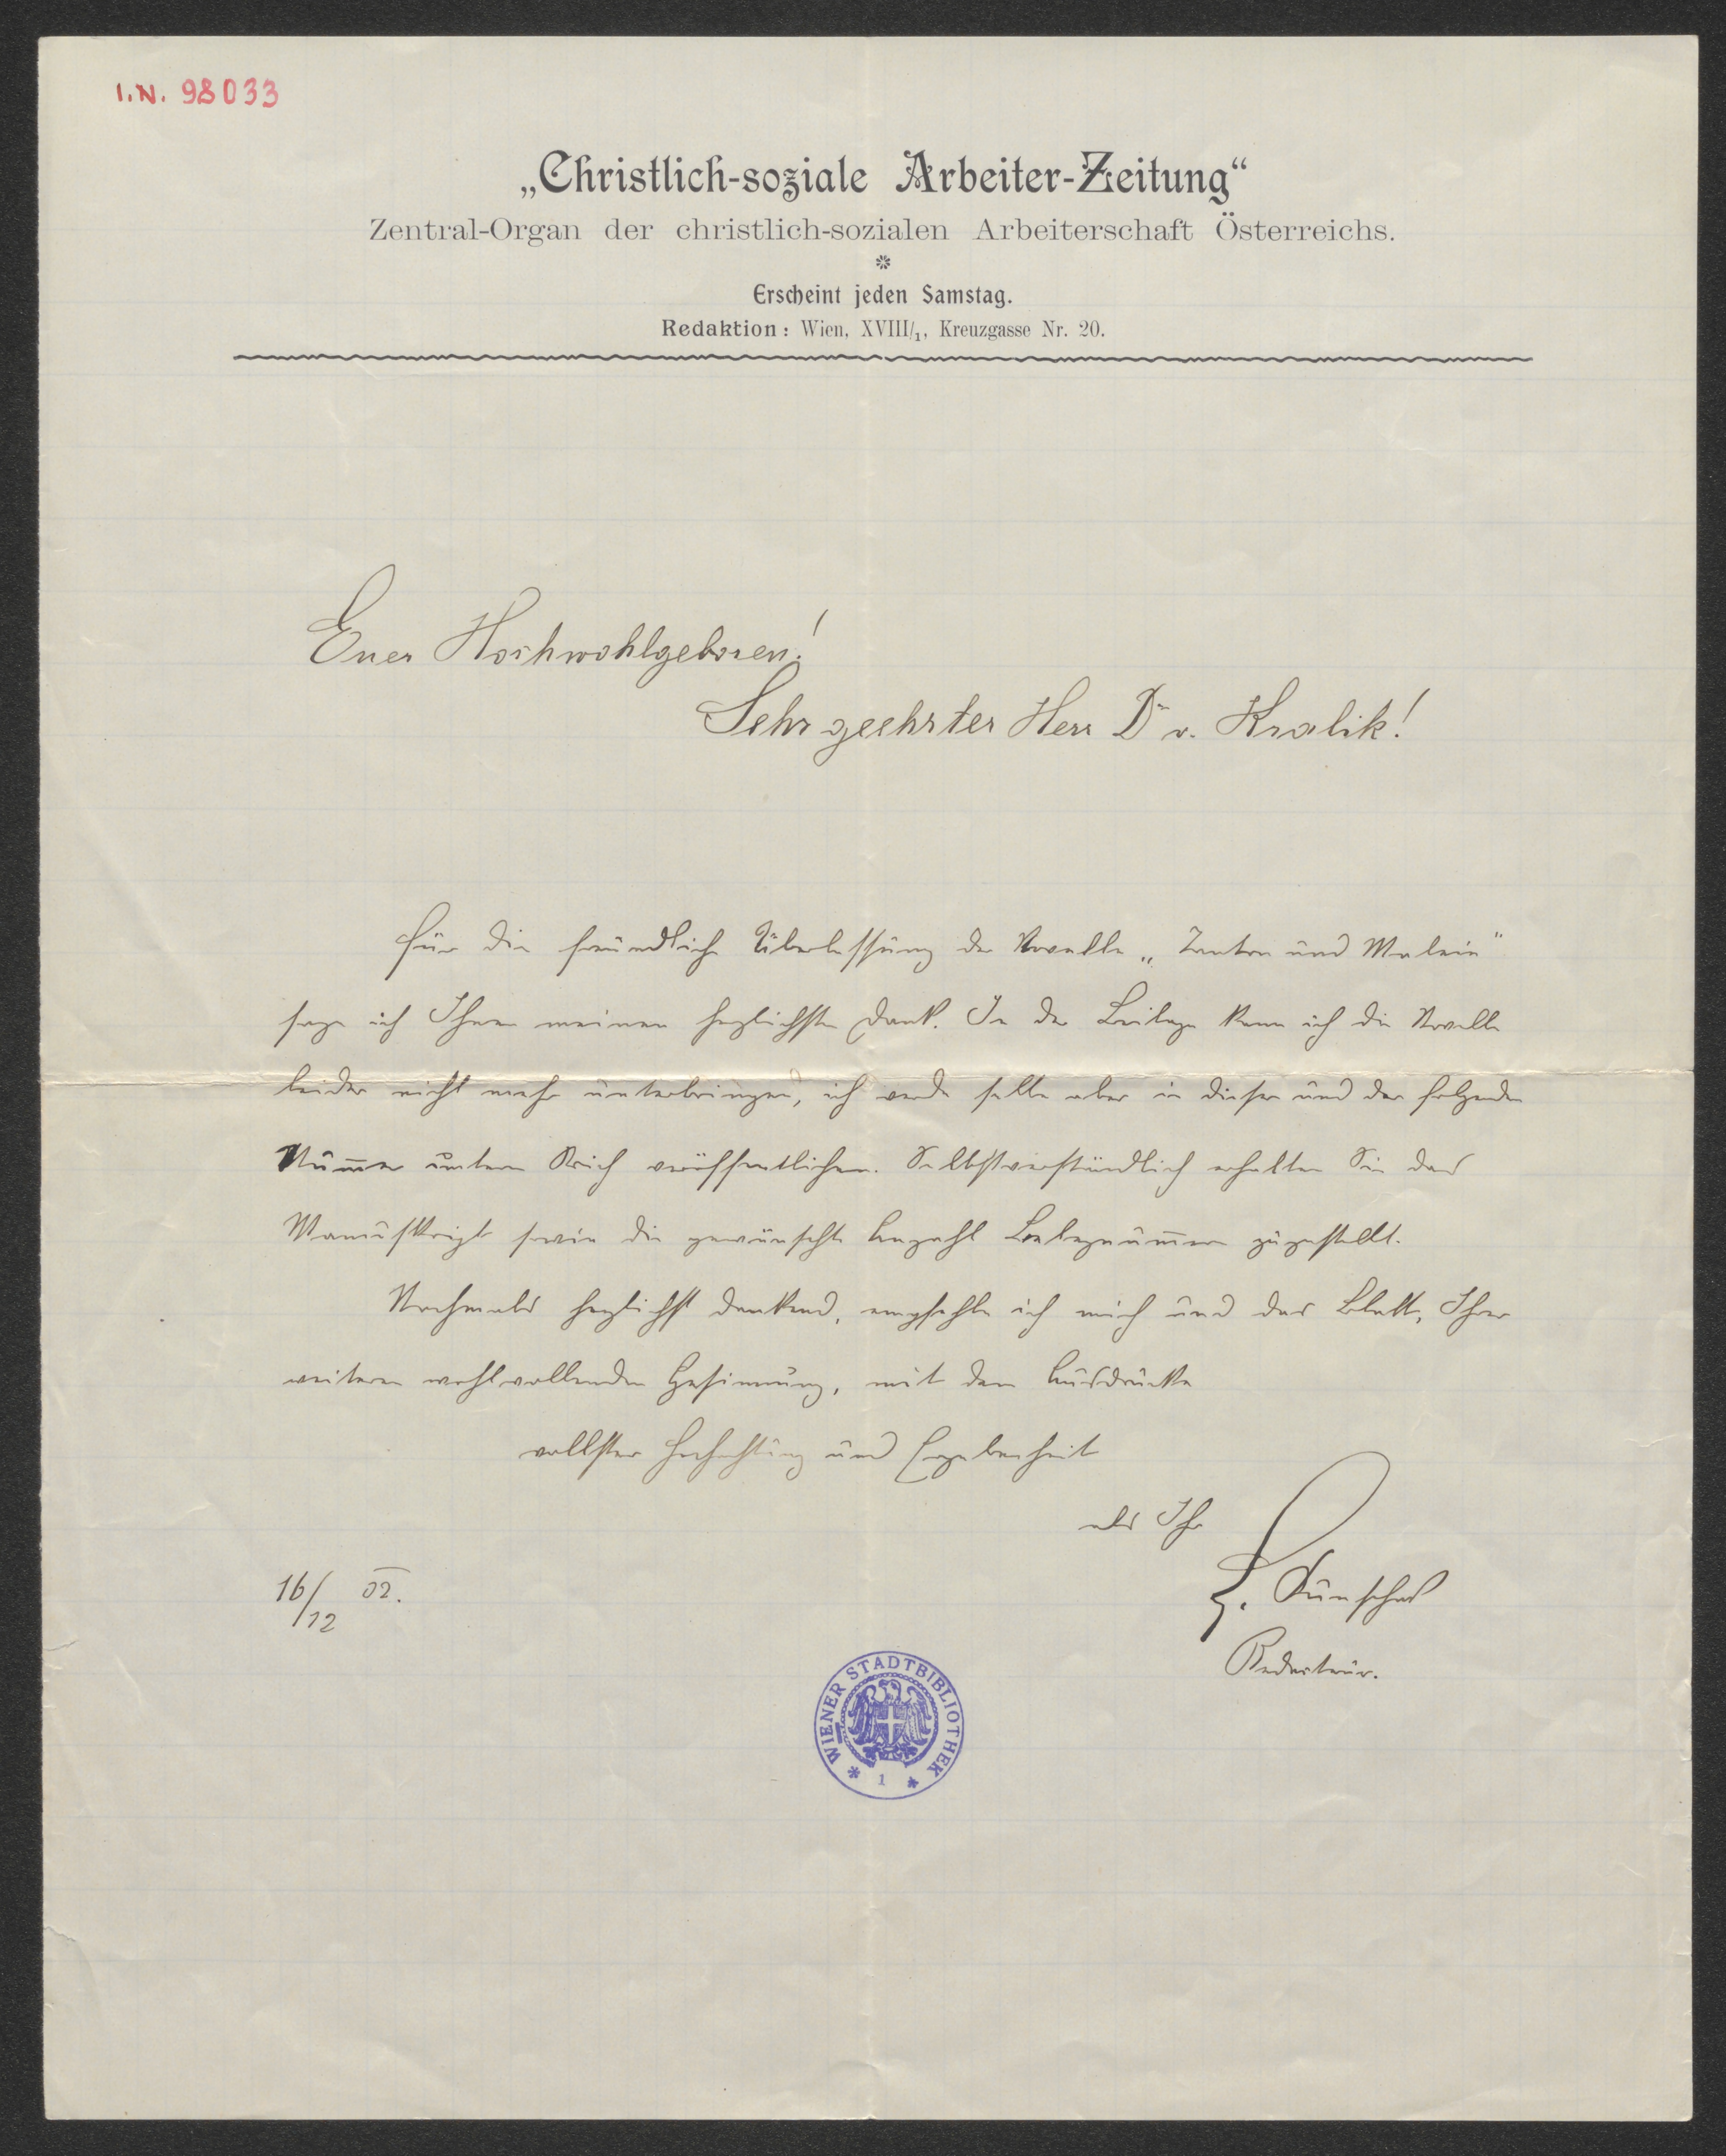 I.N. 98033
„Christlich-soziale Arbeiter-Zeitung“
Zentral-Organ der christlich-sozialen Arbeiterschaft Österreichs.
Erscheint jeden Samstag.
Redaktion: Wien, XVIII/1, Kreuzgasse Nr. 20.
Euer Hochwohlgeboren!
Sehr geehrter Herr Dr v. Kralik!
Für die freundliche Überlassung der Novelle „ und
sage ich Ihnen meinen herzlichsten Dank. In der Beilage kann ich die Novelle
leider nicht mehr unterbringen, ich werde selbe aber in dieser und der folgenden
Num̄er unterm Strich veröffentlichen. Selbstverständlich erhalten Sie das
Manuskript sowie die gewünschte Anzahl Belegnum̄ern zugestellt.
Nochmals herzlichst dankend, empfehle ich mich und das Blatt, Ihrer
weiteren wohlwollenden Gesinnung, mit dem Ausdrucke
vollster Hochachtung und Ergebenheit
als Ihr
16/12 02.
Redacteur.
WIENER STADTBIBLIOTHEK
1